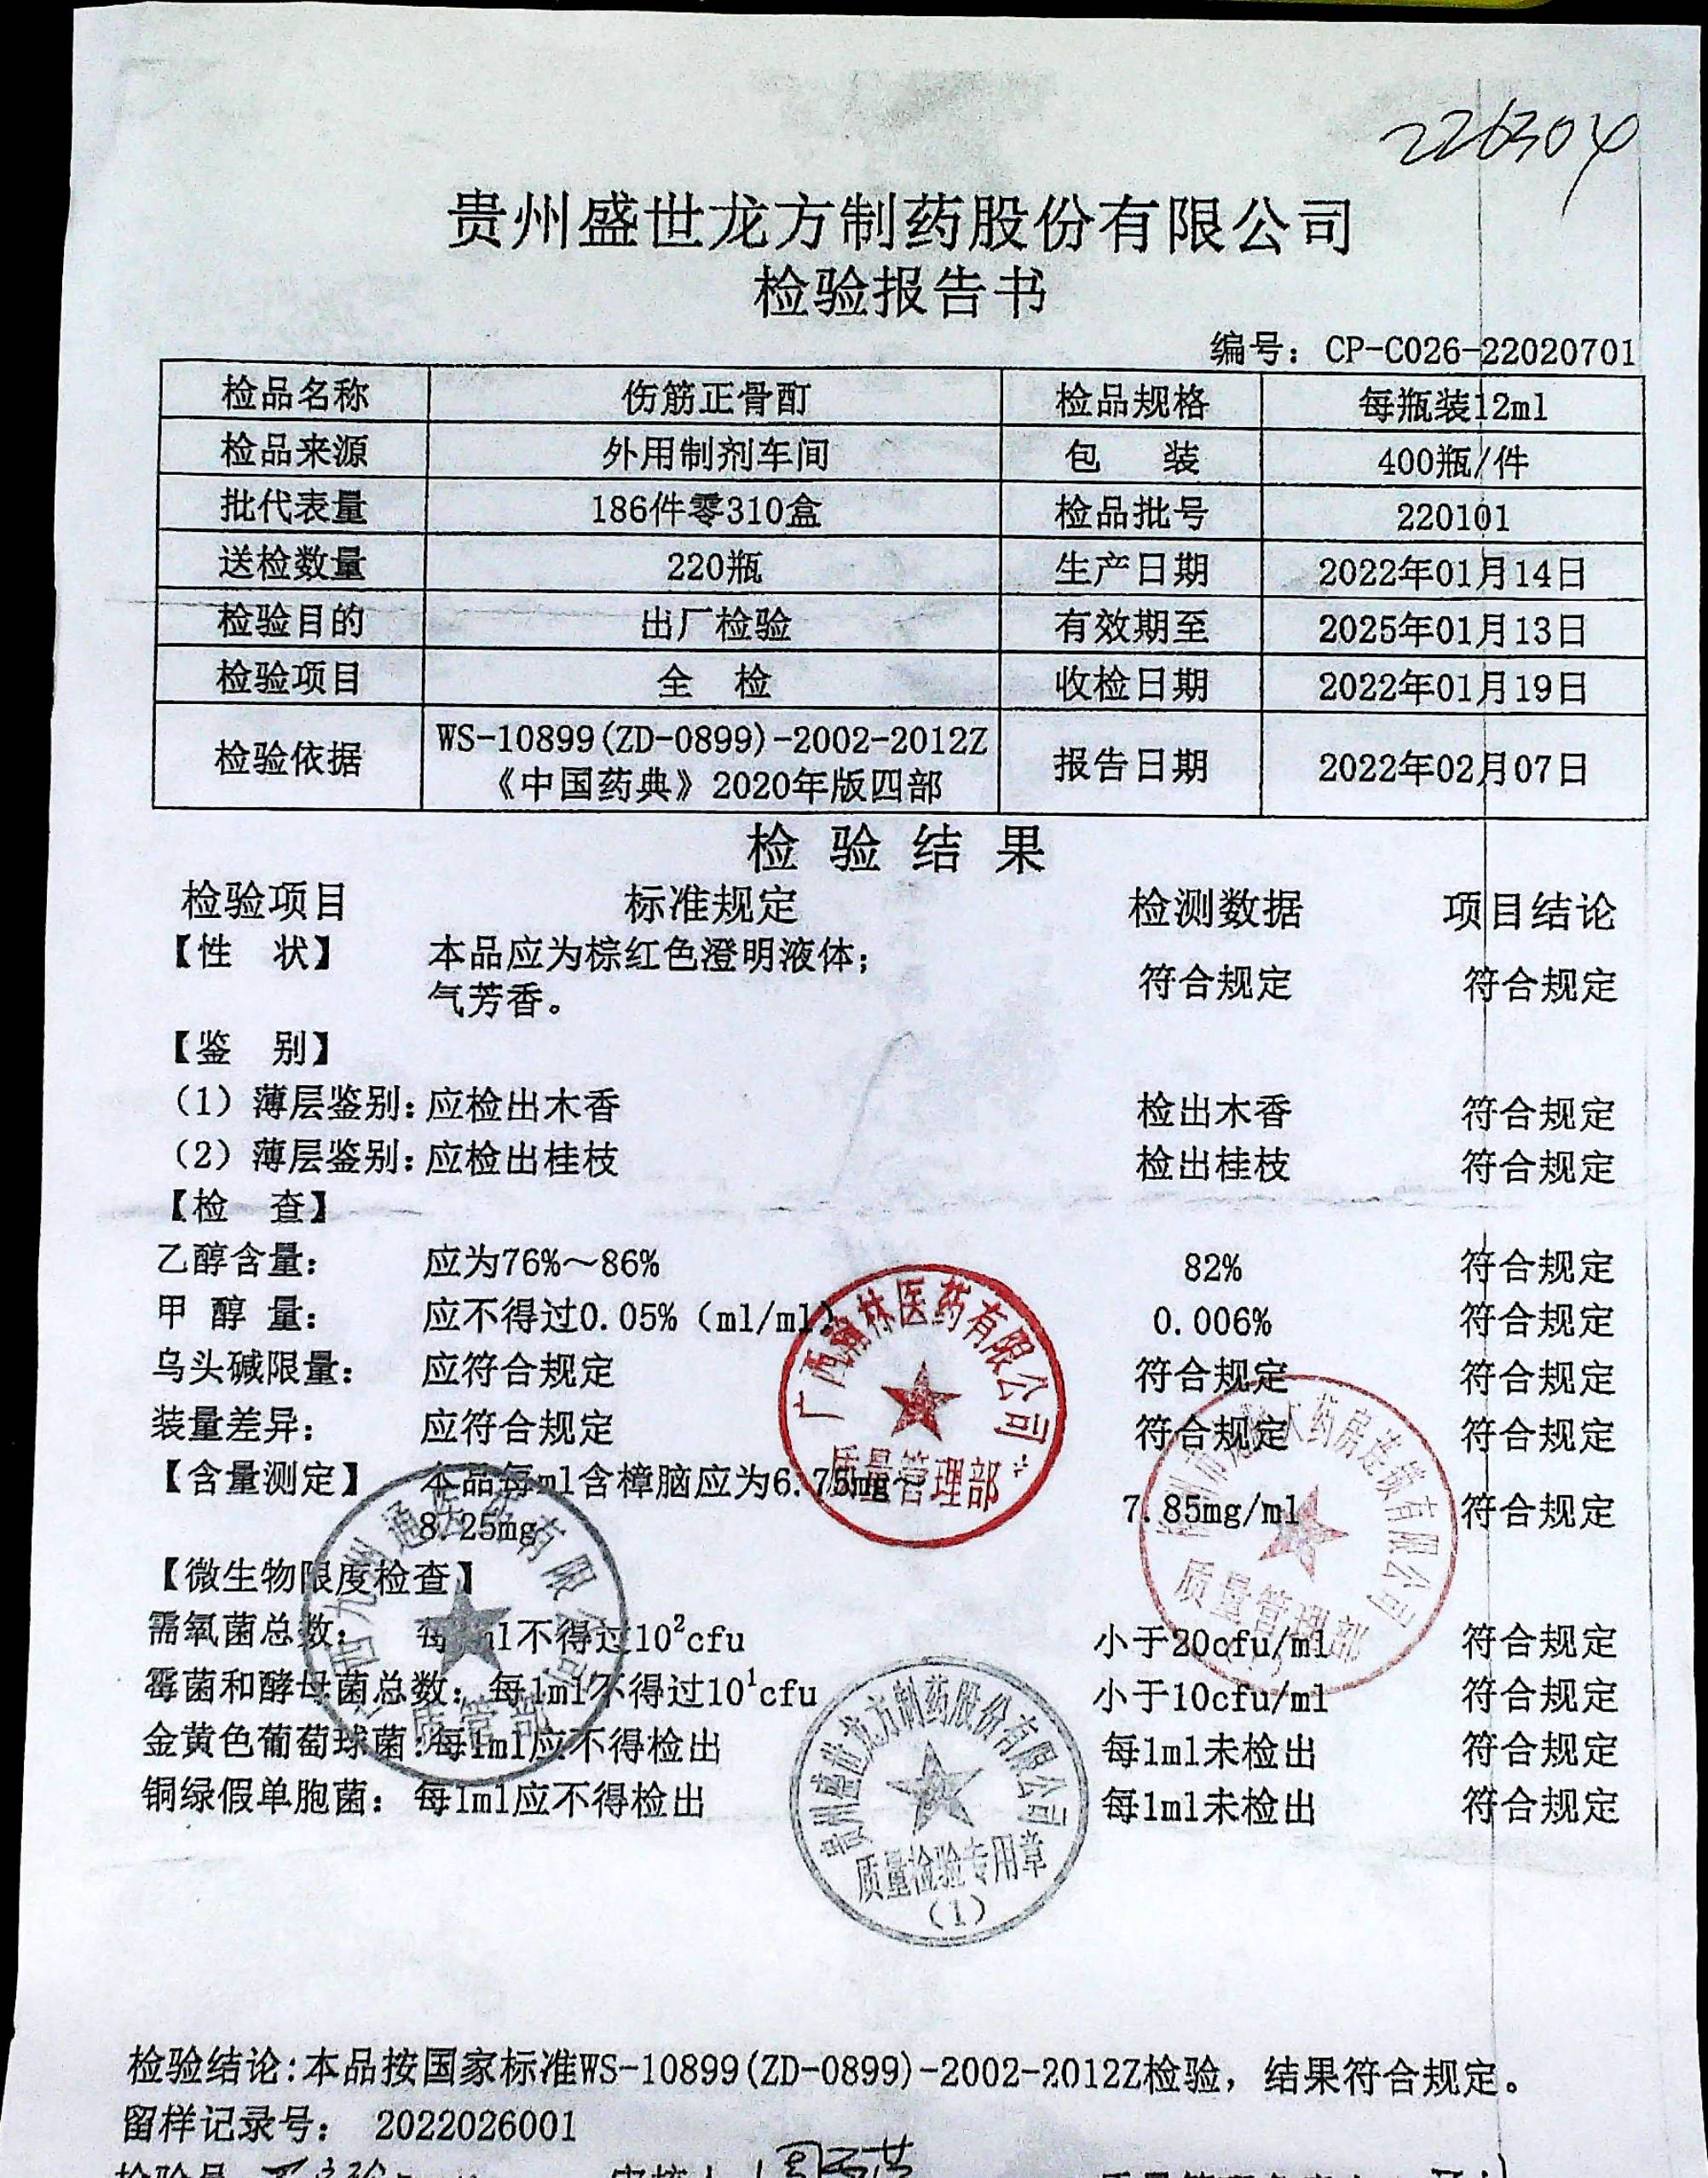 226304
贵州盛世龙方制药股份有限公司
检验报告书
编号：CP-C026-22020701
检品名称 伤筋正骨酊 检品规格 每瓶装12ml
检品来源 外用制剂车间 包 装 400瓶/件
批代表量 186件零310盒 检品批号 220101
送检数量 220瓶 生产日期 2022年01月14日
检验目的 出厂检验 有效期至 2025年01月13日
检验项目 全 检 收检日期 2022年01月19日
检验依据 WS-10899(ZD-0899)-2002-2012Z
《中国药典》2020年版四部 报告日期 2022年02月07日
检 验 结 果
检验项目 标准规定 检测数据 项目结论
【性 状】 本品应为棕红色澄明液体；
气芳香。 符合规定 符合规定
【鉴 别】
（1）薄层鉴别：应检出木香 检出木香 符合规定
（2）薄层鉴别：应检出桂枝 检出桂枝 符合规定
【检 查】
乙醇含量： 应为76%～86% 82% 符合规定
甲 醇 量： 应不得过0.05%（ml/ml） 0.006% 符合规定
乌头碱限量： 应符合规定 符合规定 符合规定
装量差异： 应符合规定 符合规定 符合规定
【含量测定】 本品每ml含樟脑应为6.75mg～
8.25mg 7.85mg/ml 符合规定
【微生物限度检查】
需氧菌总数： 每1ml不得过10²cfu 小于20cfu/ml 符合规定
霉菌和酵母菌总数：每1ml不得过10¹cfu 小于10cfu/ml 符合规定
金黄色葡萄球菌：每1ml应不得检出 每1ml未检出 符合规定
铜绿假单胞菌：每1ml应不得检出 每1ml未检出 符合规定
广西瀚林医药有限公司
质量管理部
大药房连锁有限公司
质量管理部
西九州通医药有限公司
质管部
贵州盛世龙方制药股份有限公司
质量检验专用章
（1）
检验结论：本品按国家标准WS-10899(ZD-0899)-2002-2012Z检验，结果符合规定。
留样记录号： 2022026001